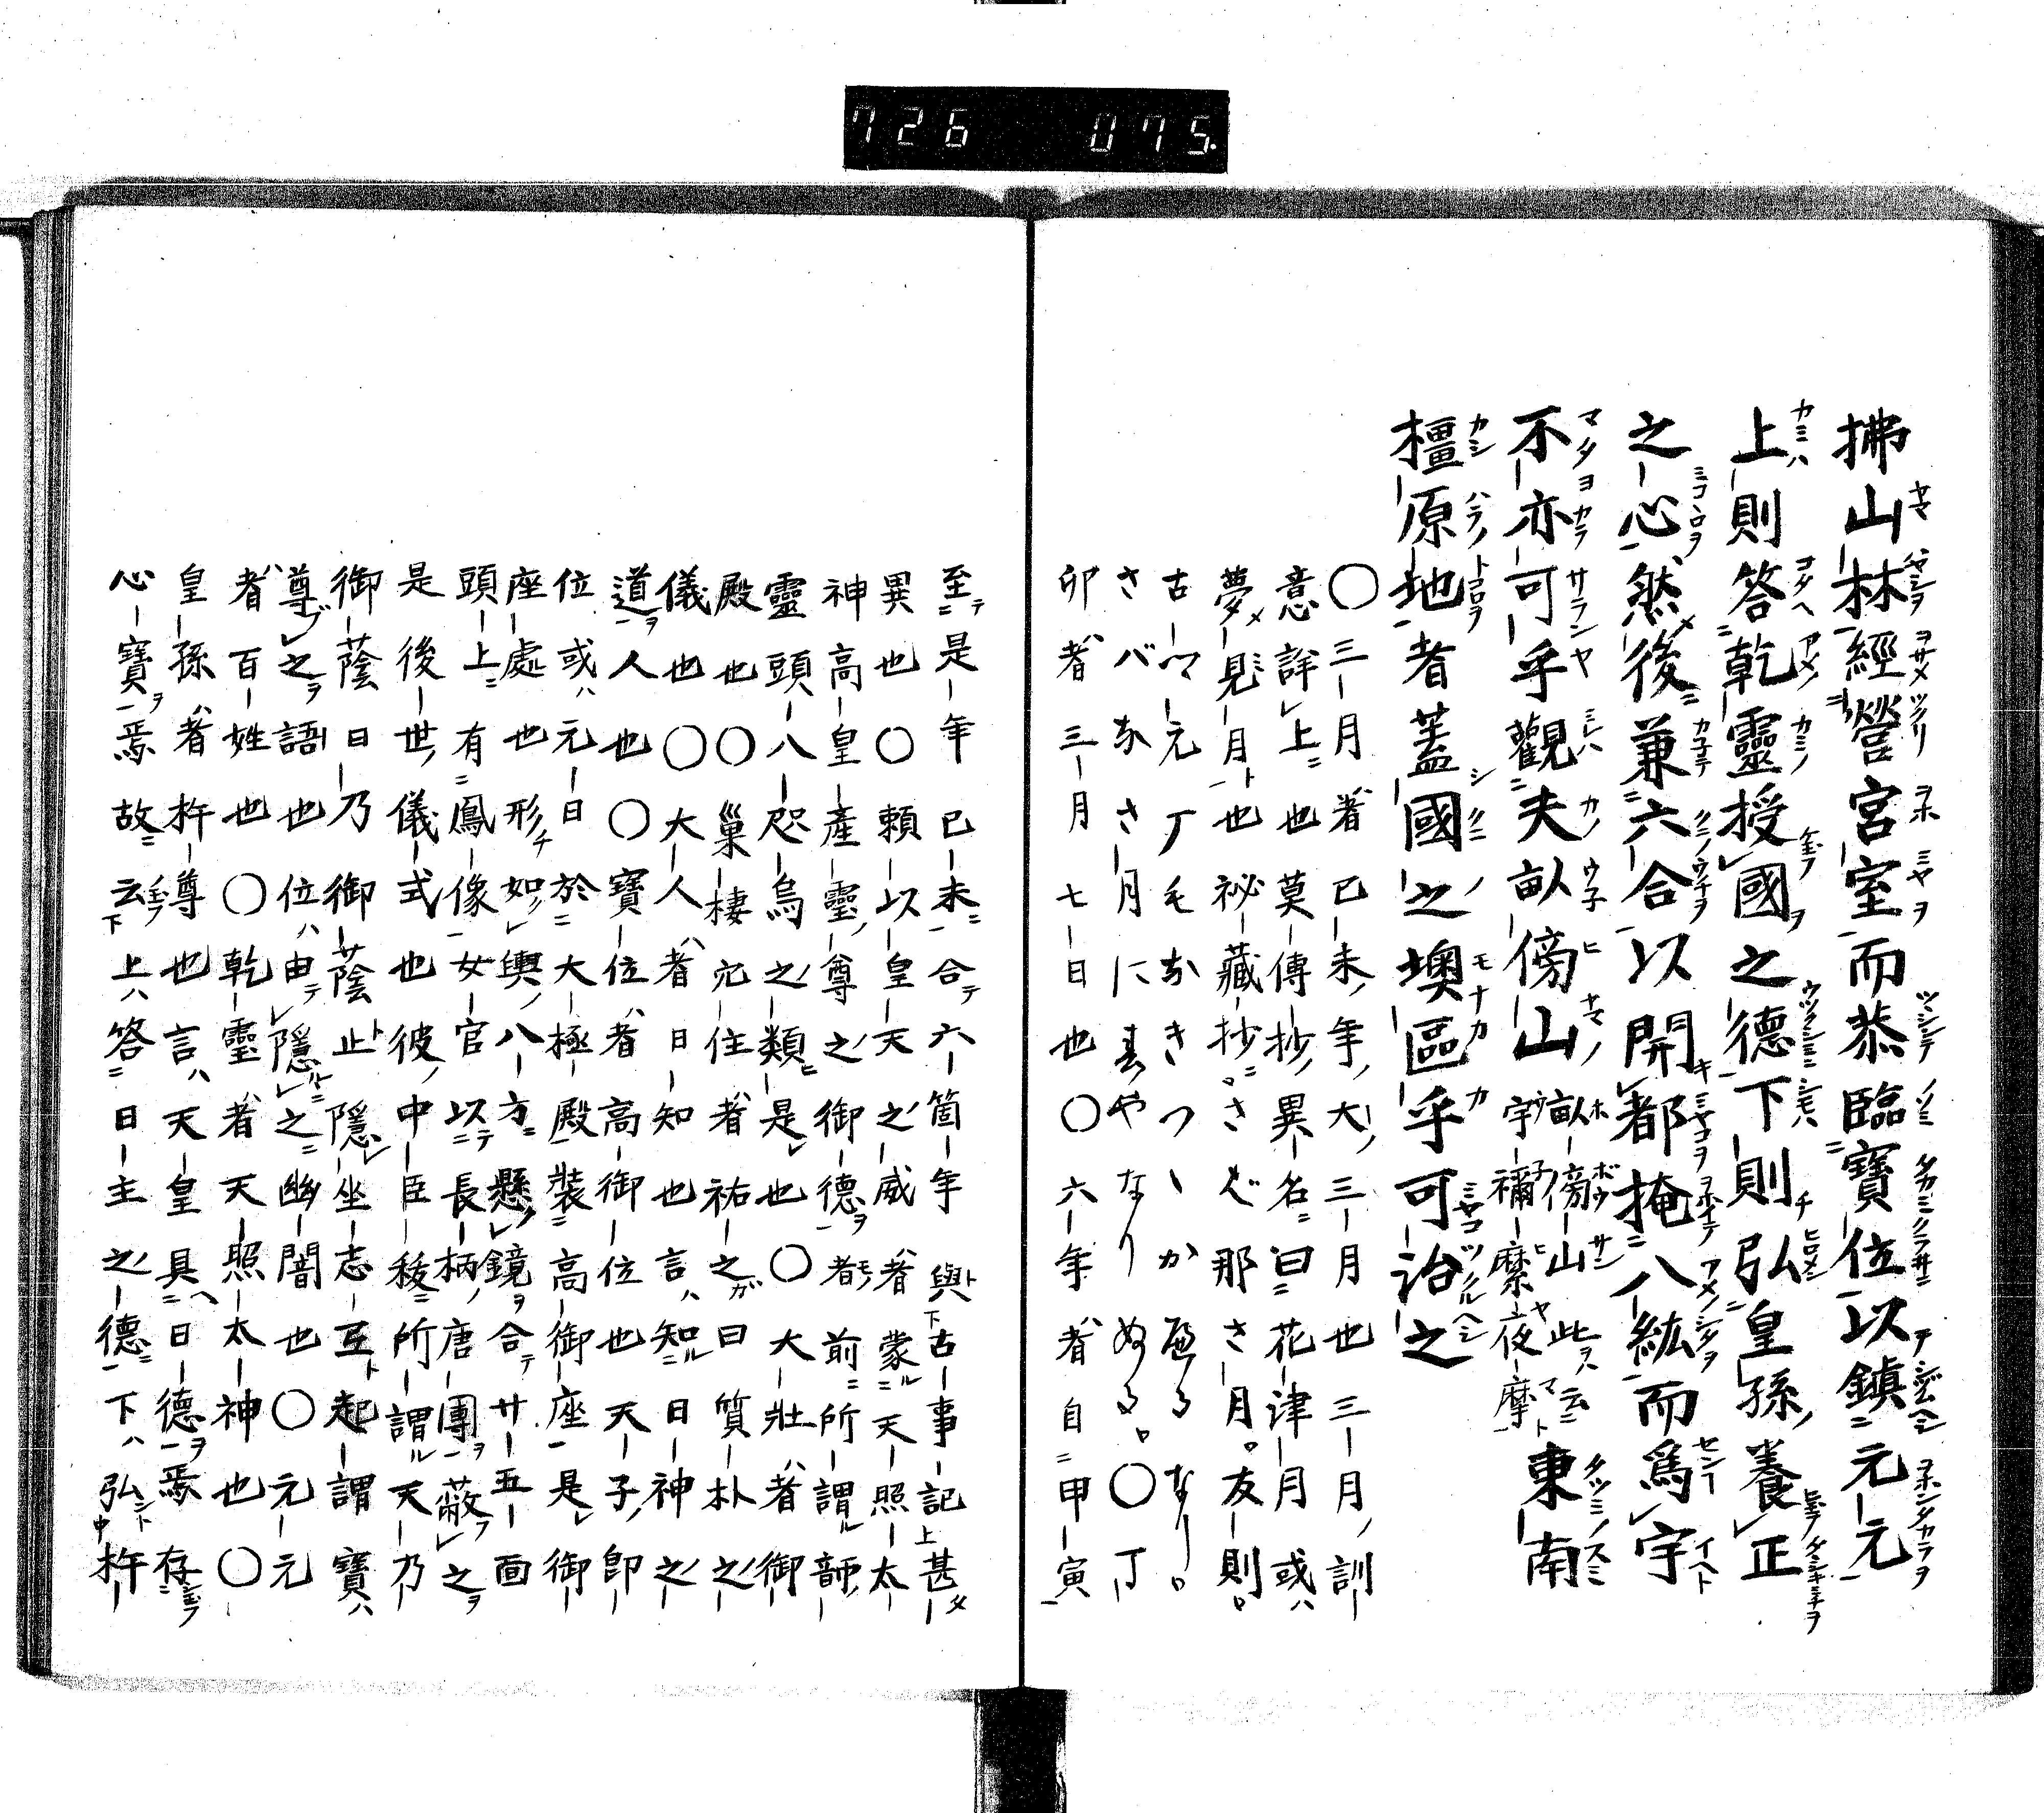 726 075.
拂山林經營宮室而恭臨寶位以鎮元元
上則答乾靈授國之德下則弘皇孫養正
之心然後兼六合以開都掩八紘而爲宇
不亦可乎觀夫畝傍山畝傍山此云宇禰縻夜摩東南
橿原地者蓋國之墺區乎可治之
〇三月者已未年大三月也三月訓
意詳上也莫傳抄異名曰花津月或ハ
夢見月也祕藏抄さくは那さ月友則
さバなさ月に春やなりぬる〇丁
卯者三月七日也〇六年者自甲寅
至是年已未合六箇年與古事記甚
異也〇賴以皇天之威者蒙天照太
神高皇產靈尊之御德者前所謂韴
靈頭八咫烏之類是也〇大壯者御
殿也〇巢棲穴住者祐之曰質朴之
儀也〇大人者日知也言知日神之
道人也〇寶位者高御位也天子即
位或元日於大極殿裝高御座是御
座處也形如輿八方懸鏡合廿五面
頭上有鳳像女官以長柄唐團蔽之
是後世儀式也彼中臣秡所謂天乃
御蔭日乃御蔭止隱坐志互起謂寶
尊之語也位由隱之幽闇也〇元元
者百姓也〇乾靈者天照太神也〇
皇孫者杵尊也言天皇具日德焉存
心寶焉故云上答日主之德下弘杵